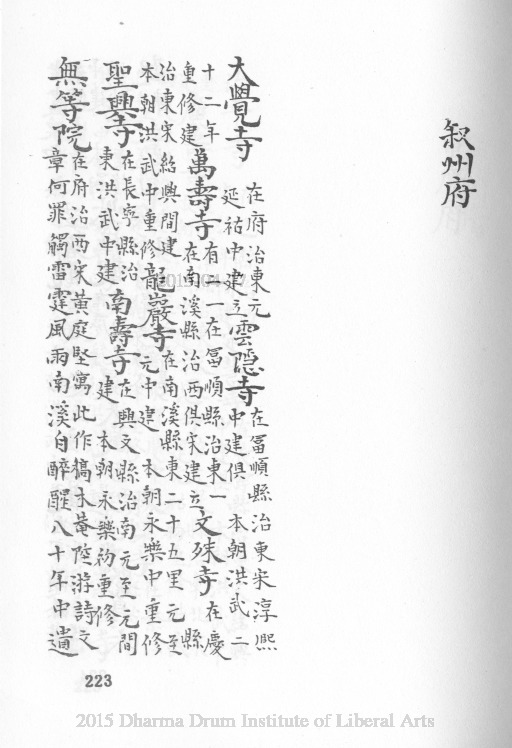 叙州府
大覺寺在府治東元延祐中建立雲隱寺在冨順縣治東宋淳熙中建俱 本朝洪武二
十二年重修建萬壽寺有二一在冨順縣治東一在南溪縣治西俱宋建立文殊寺在慶縣
治東宋紹興間建本朝洪武中重修龍巖寺在南溪縣東二十五里元至元中建 本朝永樂中重修
聖興寺在長寧縣治東洪武中建南壽寺在興文縣治南元至元間建 本朝永樂初重修
無等院在府治西宋黄庭堅寓此作槁木菴陸游詩文章何罪觸雷霆風雨南溪自醉醒八十年中遺
223
2015 Dharma Drum Institute of Liberal Arts